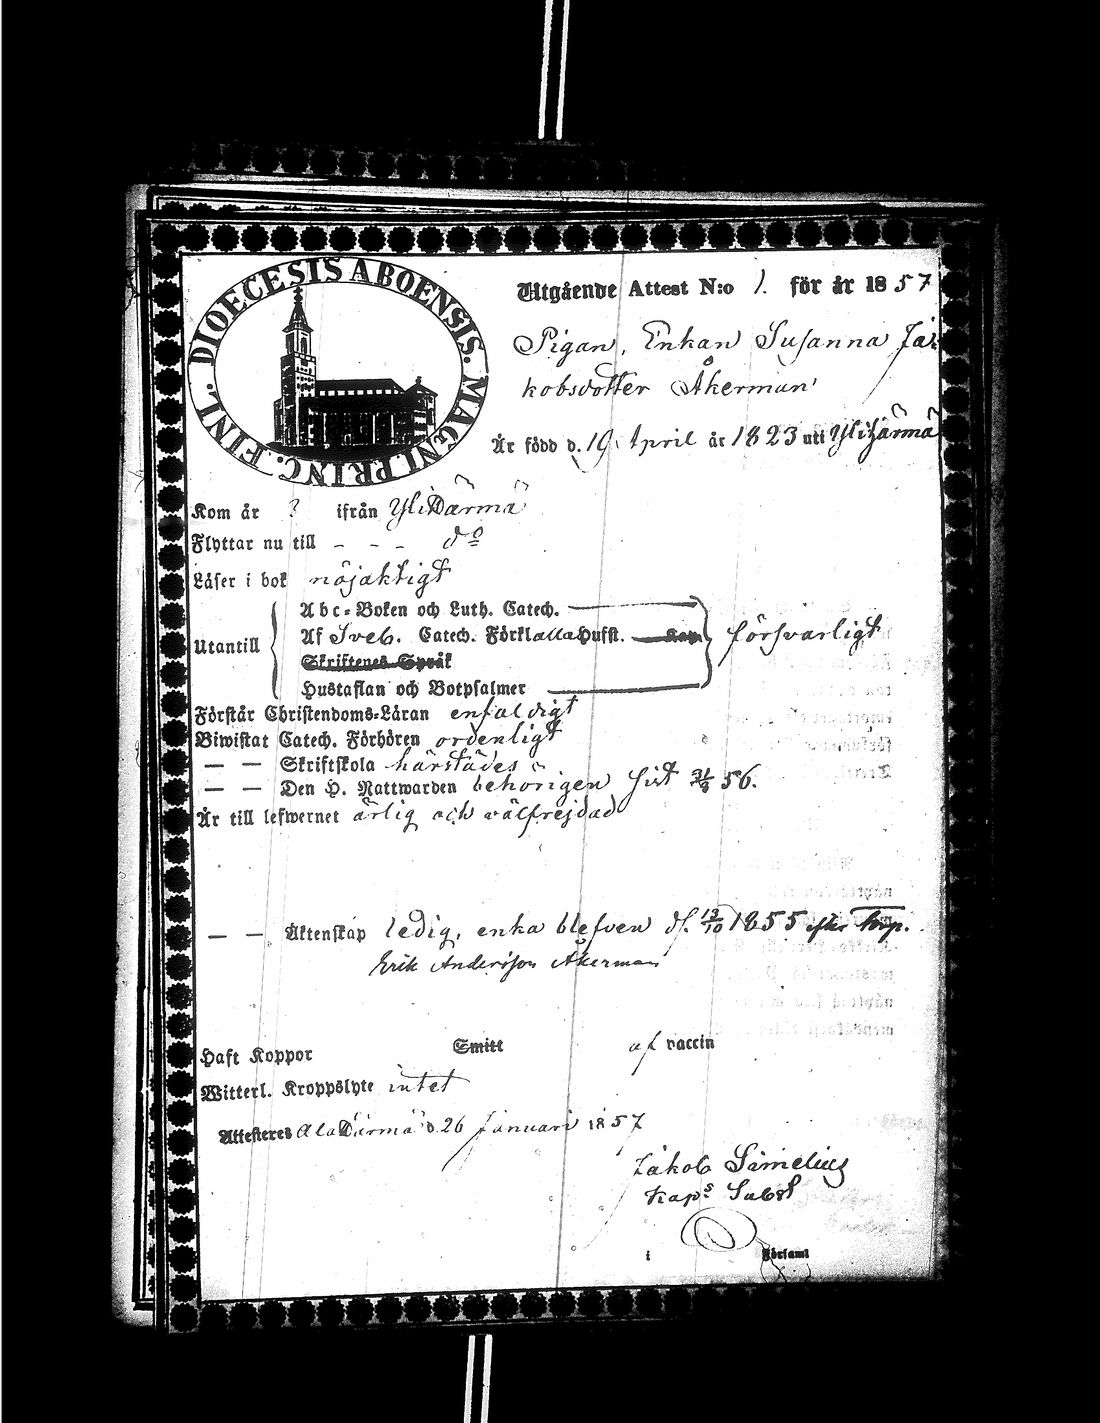 DIOECESIS ABOENSIS. MAGNI PRINC. FINL.
Utgående Attest N:o 1. för år 1857
Pigan, Enkan Susanna Ja-
kobsdotter Åkerman
Är född d. 19 April år 1823 uti Ylihärmä
Kom år ? ifrån Ylihärmä
Flyttar nu till - - - do
Läser i bok nöjaktigt
Utantill
Abc-Boken och Luth. Catech.
Af Sveb. Catech. Förkl alla Hufst. Kap.
Skriftenes Språk
Hustaflan och Botpsalmer
försvarligt
Förstår Christendoms-Läran enfaldigt
Biwistat Catech. Förhören ordenligt
— — Skriftskola härstädes
— — Den H. Nattwarden behörigen sist 56.
Är till lefwernet ärlig och välfrejdad
— — Äktenskap ledig, enka blefven d. 13/10 1855 efter Torp.
Erik Andersson Åkerman
Haft Koppor Smitt af vaccin
Witterl. Kroppslyte intet
Attesteres Alahärmä d. 26 Januari 1857
Jakob Simelius
Kaps Subst
i Församl